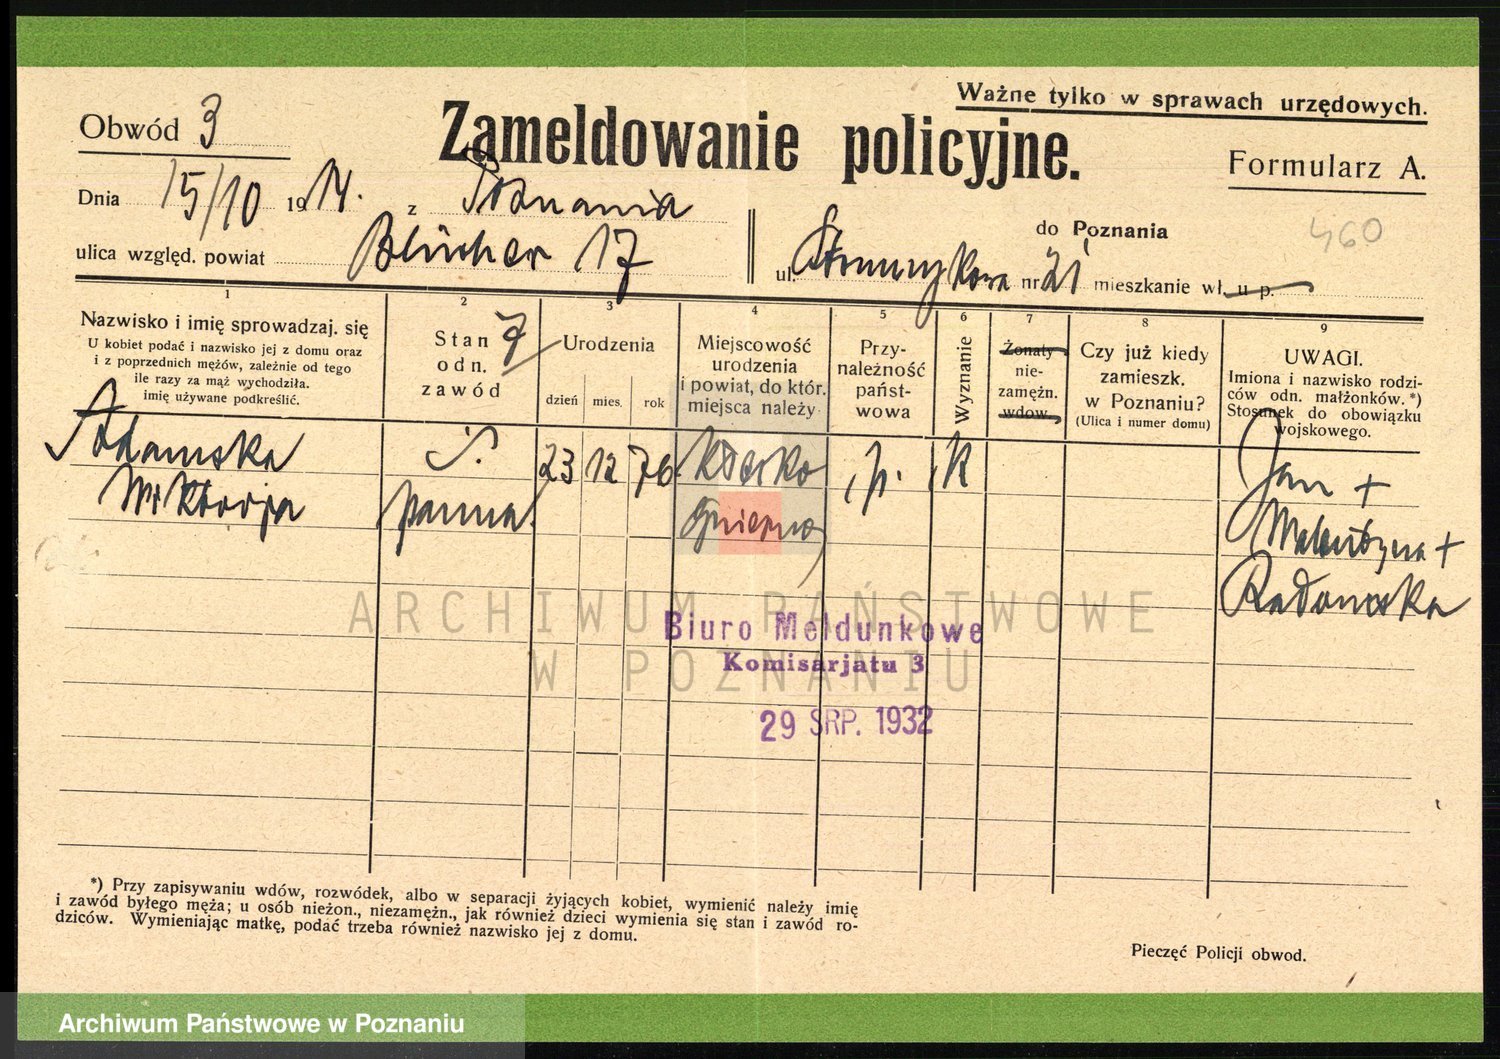 Ważne tylko w sprawach urzędowych.
Obwód 3
Zameldowanie policyjne.
Formularz A.
Dnia 15/10 1914. z Poznania
do Poznania
460
ulica względ. powiat Blücher 17
ul. nr 21 mieszkanie wł. u p.
1 2 3 4 5 6 7 8 9
Nazwisko i imię sprowadzaj. się
U kobiet podać i nazwisko jej z domu oraz
i z poprzednich mężów, zależnie od tego
ile razy za mąż wychodziła.
imię używane podkreślić.
Stan
odn.
zawód
7
Urodzenia
dzień mies. rok
Miejscowość
urodzenia
i powiat, do któr.
miejsca należy
Przy-
należność
państ-
wowa
Wyznanie
Żonaty
nie-
zamężn.
wdow.
Czy już kiedy
zamieszk.
w Poznaniu?
(Ulica i numer domu)
UWAGI.
Imiona i nazwisko rodzi-
ców odn. małżonków. *)
Stosunek do obowiązku
wojskowego.
Adamska
Wiktorja
panna
23 12 76
Kłecko
Gniezno
p.
k
Jan +
Walentyna +
Radomska
ARCHIWUM PAŃSTWOWE
W POZNANIU
Biuro Meldunkowe
Komisarjatu 3
29 SRP. 1932
*) Przy zapisywaniu wdów, rozwódek, albo w separacji żyjących kobiet, wymienić należy imię
i zawód byłego męża; u osób nieżon., niezamężn., jak również dzieci wymienia się stan i zawód ro-
dziców. Wymieniając matkę, podać trzeba również nazwisko jej z domu.
Pieczęć Policji obwod.
Archiwum Państwowe w Poznaniu